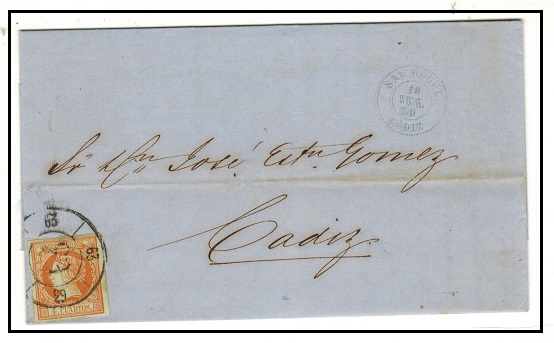 SAN ROQUE
18
JUL
60
CADIZ
Sr Dn José Estn Gomez
Cadiz
63
63
63
4 CUARTOS